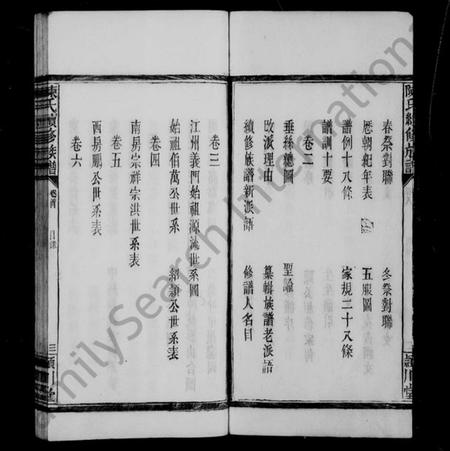 春祭對聯 冬祭對聯
歷朝紀年表 五服圖
譜例十八條 家規二十八條
譜訓十要
卷二
垂絲總圖 聖諭
改派理由 纂輯族譜老派語
續修族譜新派語 修譜人名目
卷三
江州義門始祖源流世系圖
始祖伯萬公世系 紹顯公世系表
卷四
南房宗祥宗洪世系表
卷五
西房鵬公世系表
卷六
陳氏續修族譜
卷首 目錄
三 潁川堂
陳氏續修族譜
潁川堂
FamilySearch International